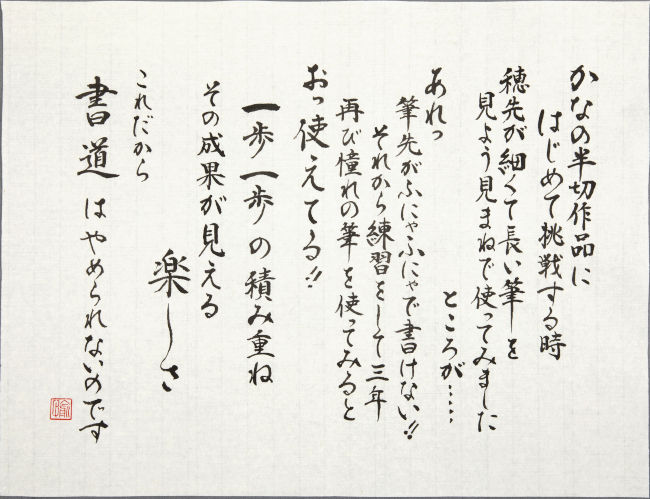 かなの半切作品に
はじめて挑戦する時
穂先が細くて長い筆を
見よう見まねで使ってみました
ところが……
あれっ
筆先がふにゃふにゃで書けない!!
それから練習をして三年
再び憧れの筆を使ってみると
おっ使えてる!!
一歩一歩の積み重ね
その成果が見える
楽しさ
これだから
書道はやめられないのです